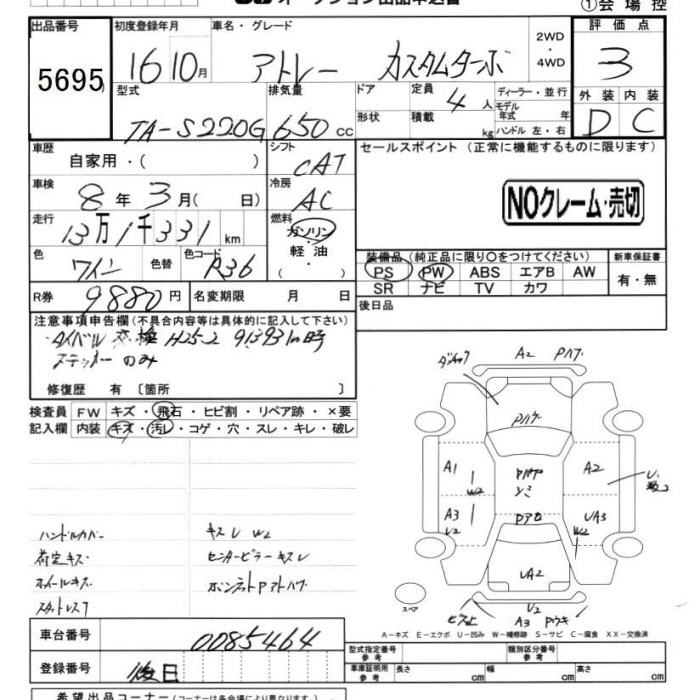 ①会場控
出品番号
5695
初度登録年月
16 10月
車名・グレード
アトレー カスタムターボ
2WD
・
4WD
評価点
3
型式
TA-S220G
排気量
650 CC
ドア
形状
定員
4 人
積載
kg
ディーラー・並行
モデル
年式 年
ハンドル 左・右
外装 内装
D C
車歴
自家用・( )
シフト
CAT
セールスポイント (正常に機能するものに限ります)
車検
8 年 3 月 ( 日)
冷房
AC
NOクレーム・売切
走行
13万1千331 km
燃料
ガソリン
・
軽油
・
( )
色
ワイン
色替
色コード
R36
装備品 (純正品に限り〇をつけてください)
PS PW ABS エアB AW
SR ナビ TV カワ
新車保証書
有・無
R券
9880 円
名変期限 月 日
後日品
注意事項申告欄(不具合内容等は具体的に記入して下さい)
タイベル交換 H25-2 91393km時
ステッカーのみ
修復歴 有 〔箇所 〕
検査員
記入欄
FW キズ・飛石・ヒビ割・リペア跡・×要
内装 キズ・汚レ・コゲ・穴・スレ・キレ・破レ
ハンドルカバー
荷室キズ
ホイールキズ
スタットレス7
キズU W2
センターピラーキズU
ボンネットPアトハゲ
A2 Pハゲ
Pハゲ
A1
W2
A2
A3
Pアセ
UA3
W2
UA2
スペア
U2
A3 Pウキ
A－キズ E－エクボ U－凹み W－補修跡 S－サビ C－腐食 XX－交換済
車台番号
0085464
登録番号
後日
型式指定番号
参考
類別区分番号
参考
車庫証明用
参考
長さ cm 幅 cm 高さ cm
希望出品コーナー(コーナーは各会場により異なります。)